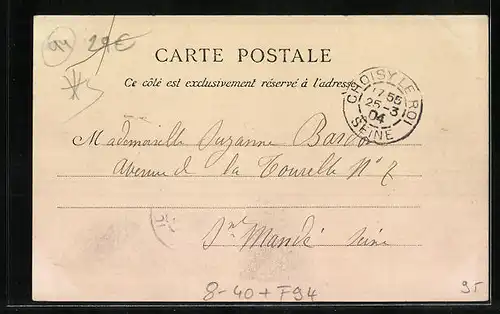 94 20€
CARTE POSTALE
Ce côté est exclusivement réservé à l'adresse
CHOISY-LE-ROI
17 55
25-3
04
SEINE
Mademoiselle Suzanne
Avenue de la Tourelle N° 7
St Mandé Seine
8-40+F94
95